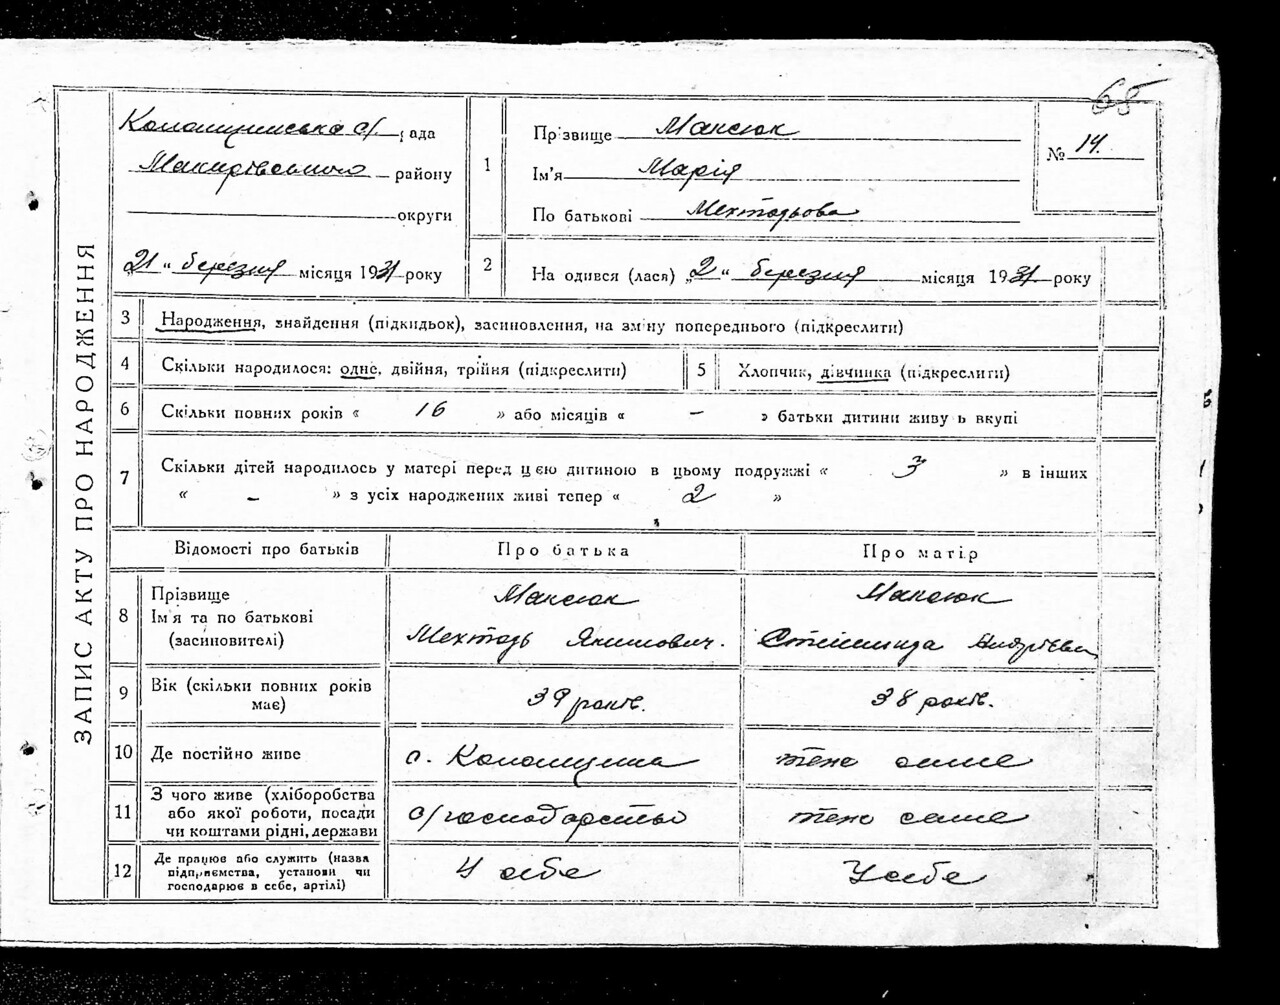 65
ЗАПИС АКТУ ПРО НАРОДЖЕННЯ
Колонщинська с/рада
Макарівського району
округи
„21“ березня місяця 1931 року
1
Прізвище Максюк
Ім'я Марія
По батькові Мехтодьова
№ 14.
2
На одився (лася) „2“ березня місяця 1931 року
3 Народження, знайдення (підкидьок), засиновлення, на зміну попереднього (підкреслити)
4 Скільки народилося: одне, двійня, трійня (підкреслити)
5 Хлопчик, дівчинка (підкреслити)
6 Скільки повних років « 16 » або місяців « – » батьки дитини живу ь вкупі
7 Скільки дітей народилось у матері перед цією дитиною в цьому подружжі « 3 » в інших
« – » з усіх народжених живі тепер « 2 »
Відомості про батьків Про батька Про матір
8 Прізвище
Ім'я та по батькові
(засиновителі)
Максюк
Мехтодь Якимович.
Максюк
Андріївна
9 Вік (скільки повних років
має)
39 років.
38 років.
10 Де постійно живе с. Колонщина теж саме
11 З чого живе (хліборобства
або якої роботи, посади
чи коштами рідні, держави
с/господарство
теж саме
12 Де працює або служить (назва
підприємства, установи чи
господарює в себе, артілі)
У себе
У себе